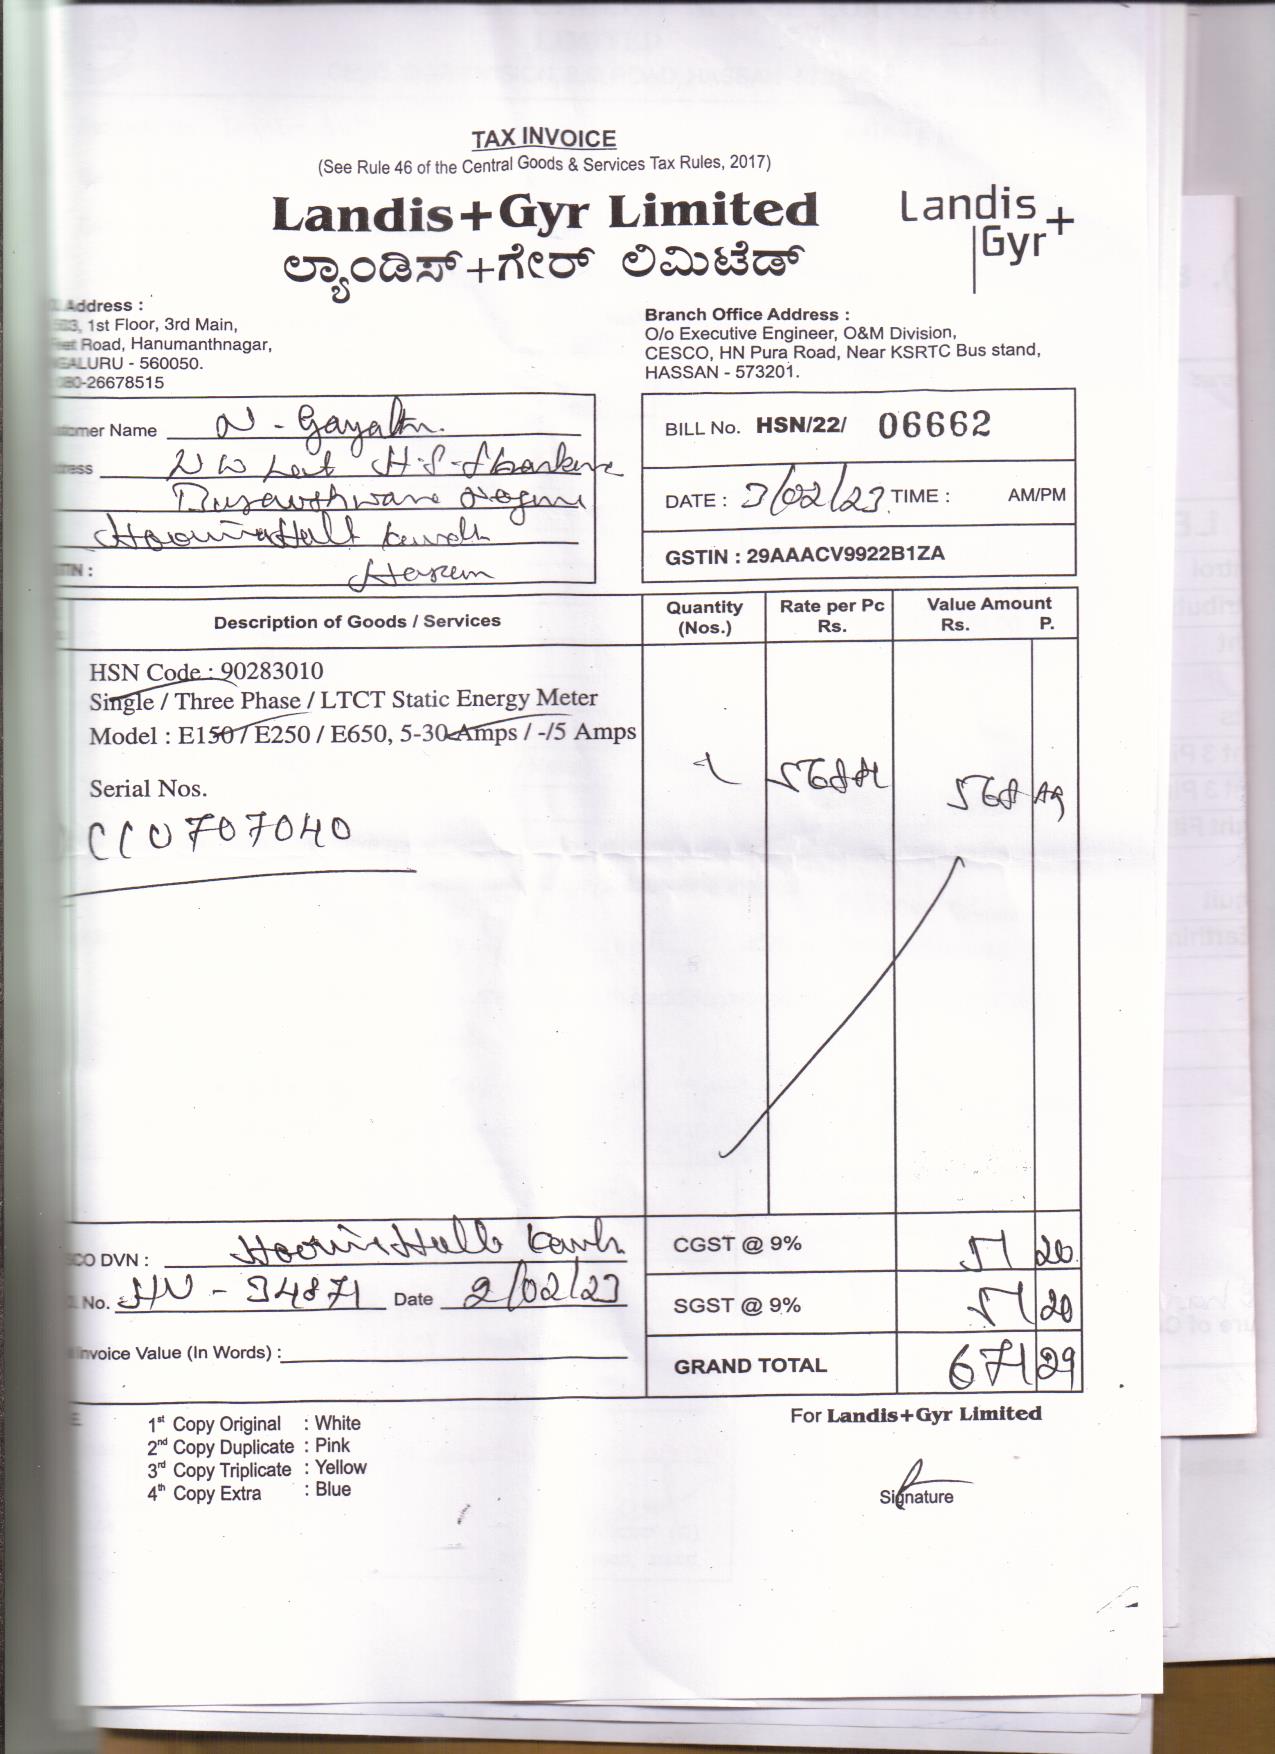 TAX INVOICE
(See Rule 46 of the Central Goods & Services Tax Rules, 2017)
Landis+Gyr Limited
ಲ್ಯಾಂಡಿಸ್+ಗೇರ್ ಲಿಮಿಟೆಡ್
Landis+
Gyr
Address :
1st Floor, 3rd Main,
Road, Hanumanthnagar,
- 560050.
-26678515
Branch Office Address :
O/o Executive Engineer, O&M Division,
CESCO, HN Pura Road, Near KSRTC Bus stand,
HASSAN - 573201.
Name N - Gayathri
H.S.
BILL No. HSN/22/ 06662
DATE : 3/02/23 TIME : AM/PM
GSTIN : 29AAACV9922B1ZA
Description of Goods / Services
Quantity (Nos.)
Rate per Pc Rs.
Value Amount Rs. P.
HSN Code : 90283010
Single / Three Phase / LTCT Static Energy Meter
Model : E150 / E250 / E650, 5-30 Amps / -/5 Amps
Serial Nos.
1 568 568
707040
DVN :
No. HN - 34871 Date 2/02/23
Invoice Value (In Words) :
CGST @ 9% 51 20
SGST @ 9% 51 20
GRAND TOTAL 671 29
1st Copy Original : White
2nd Copy Duplicate : Pink
3rd Copy Triplicate : Yellow
4th Copy Extra : Blue
For Landis+Gyr Limited
Signature